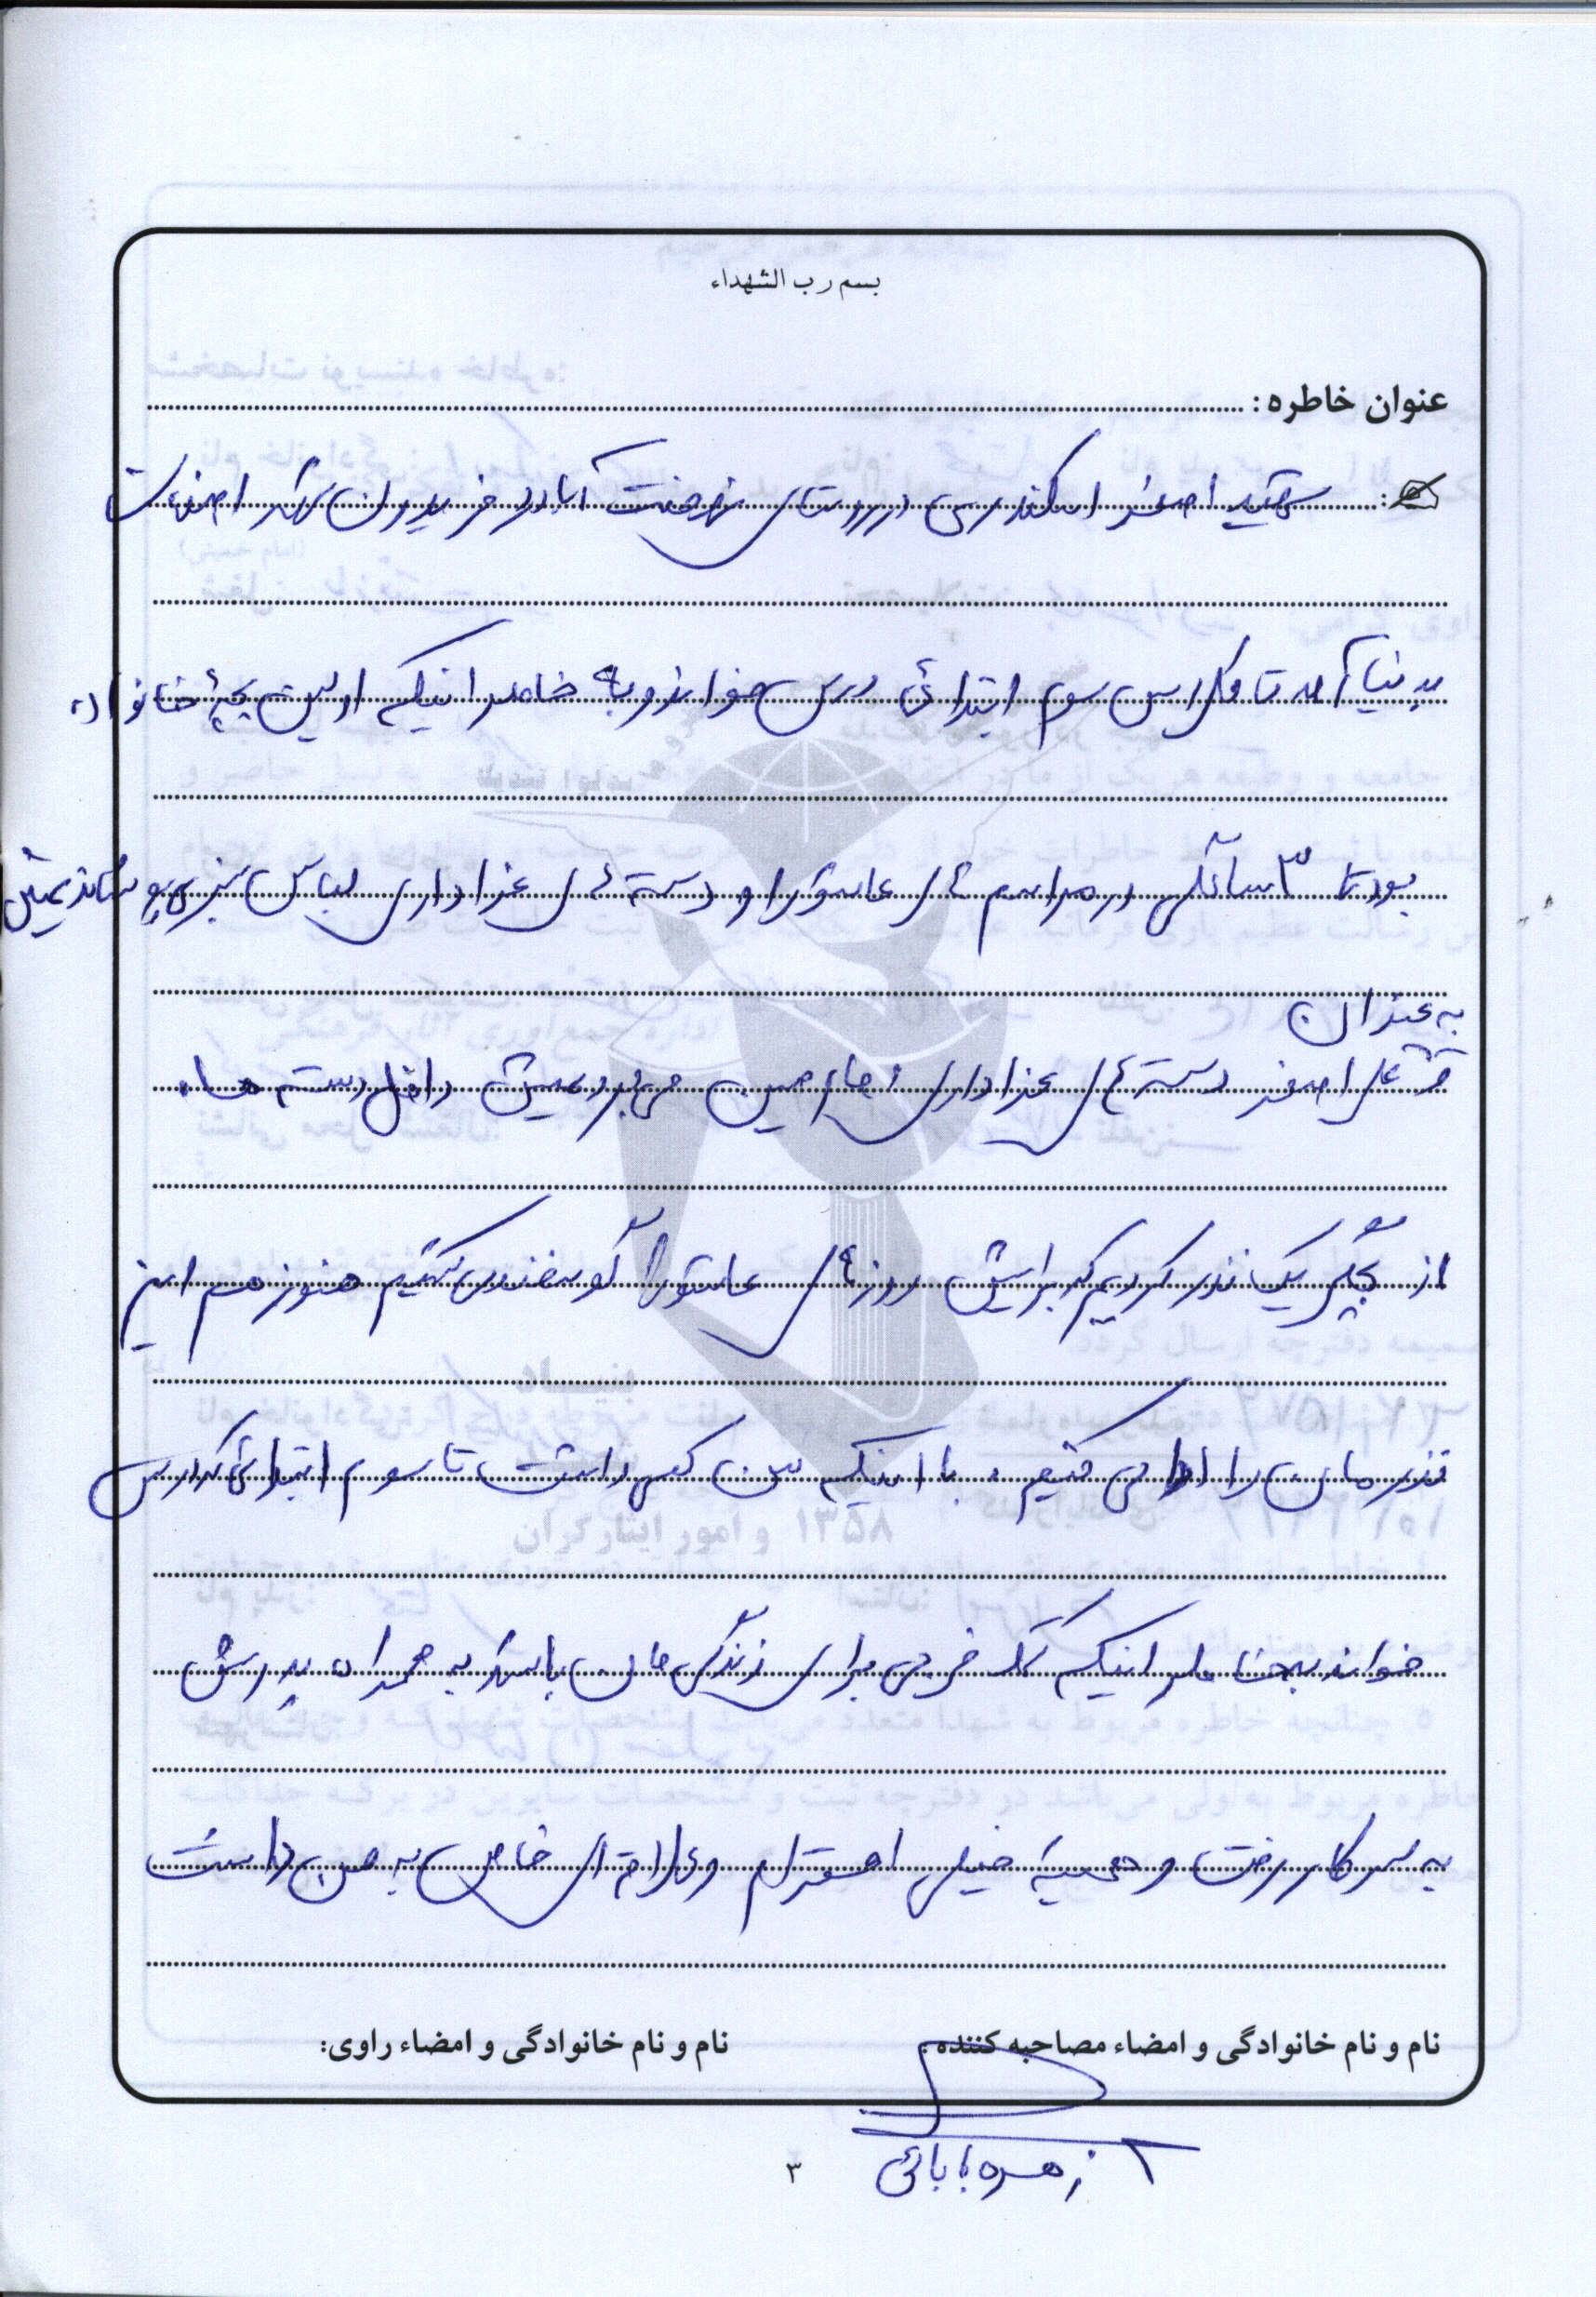 بسم رب الشهداء
عنوان خاطره :
شهید اصغر اسکندری در روستای نهضت آباد فریدون شهر اصفهان
بدنیا آمد تا کلاس سوم ابتدائی درس خواند و به خاطر اینکه اولین بچهٔ خانواده
بود تا ۳ سالگی در مراسم های عاشورا و دسته های عزاداری لباس سبز می پوشاندیمش
به عنوان
علی اصغر دسته های عزاداری امام حسین می بردیمش داخل دسته ها.
از بچگی یک نذر کردیم که برایش روزهای عاشورا گوسفندی کشتیم هنوز هم این
نذرمان را ادا می کنیم. با اینکه سن کمی داشت تا سوم ابتدائی که درس
خواند بخاطر اینکه کمک خرجی برای زندگی مان باشد به همراه پدرش
به سر کار رفت و همیشه خیلی احترام و علاقه ای خاص به من داشت
نام و نام خانوادگی و امضاء مصاحبه کننده:
نام و نام خانوادگی و امضاء راوی:
زهره بابائی
۳